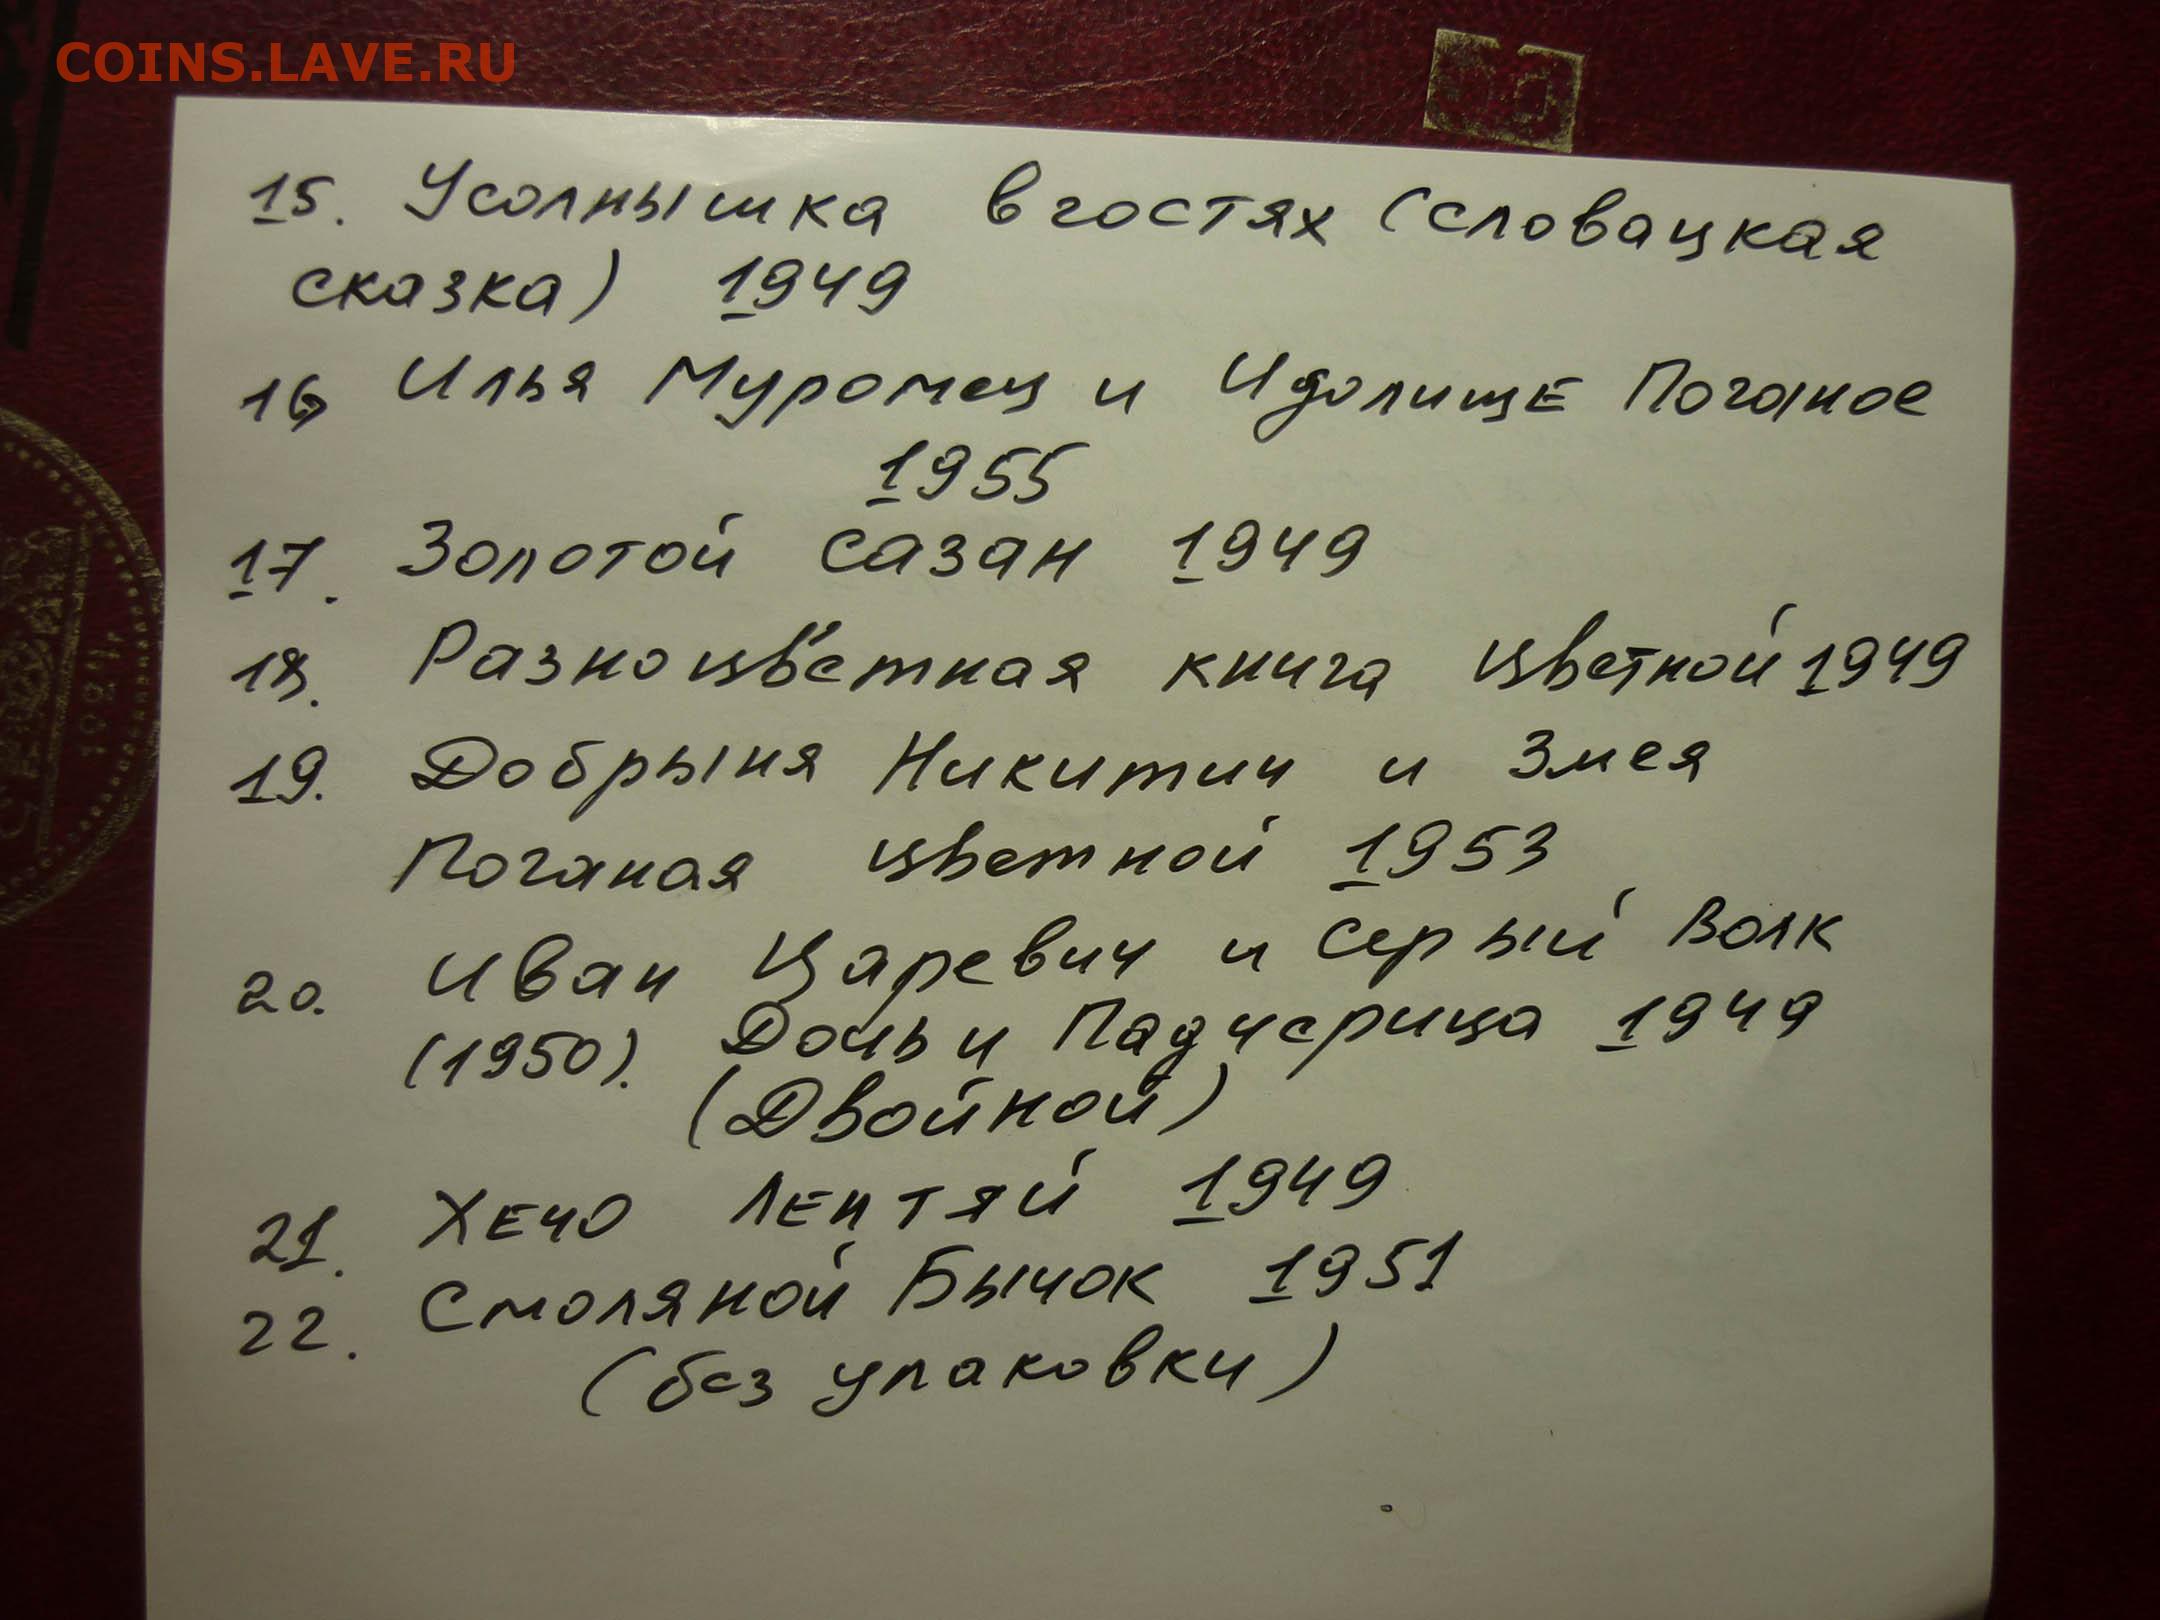 COINS.LAVE.RU
15. Усолнышка в гостях (словацкая
сказка) 1949
16 Илья Муромец и Идолище Поганое
1955
17. Золотой сазан 1949
18. Разноцветная книга цветной 1949
19. Добрыня Никитич и Змея
Поганая цветной 1953
20. Иван Царевич и серый Волк
(1950). Дочь и Падчерица 1949
(Двойной)
21. Хечо Лентяй 1949
22. Смоляной Бычок 1951
(без упаковки)